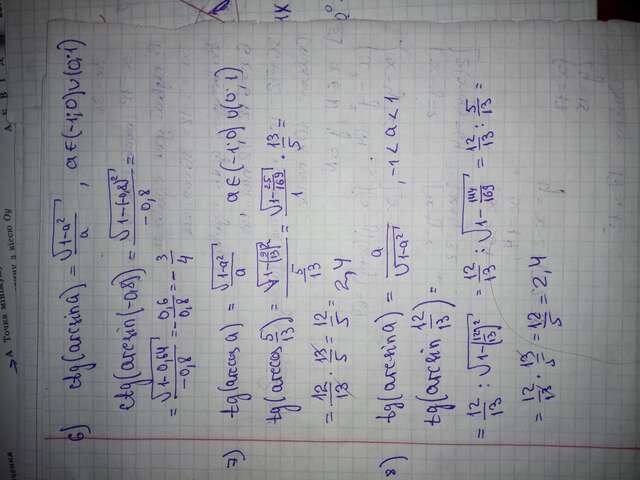 6) ctg(arcsin a) = √(1-a²)/a , a∈(-1;0)∪(0;1)
ctg(arcsin(-0,8)) = √(1-(-0,8)²)/-0,8 =
= √(1-0,64)/-0,8 = -0,6/0,8 = -3/4
7) tg(arccos a) = √(1-a²)/a , a∈(-1;0)∪(0;1)
tg(arccos 5/13) = √(1-(5/13)²)/(5/13) = √(1-25/169)/1 · 13/5 =
= 12/13 · 13/5 = 12/5 = 2,4
8) tg(arcsin a) = a/√(1-a²) , -1<a<1
tg(arcsin 12/13) =
= 12/13 : √(1-(12/13)²) = 12/13 : √(1-144/169) = 12/13 : 5/13 =
= 12/13 · 13/5 = 12/5 = 2,4
А Точка
віссю Oy
А Б В Г Д